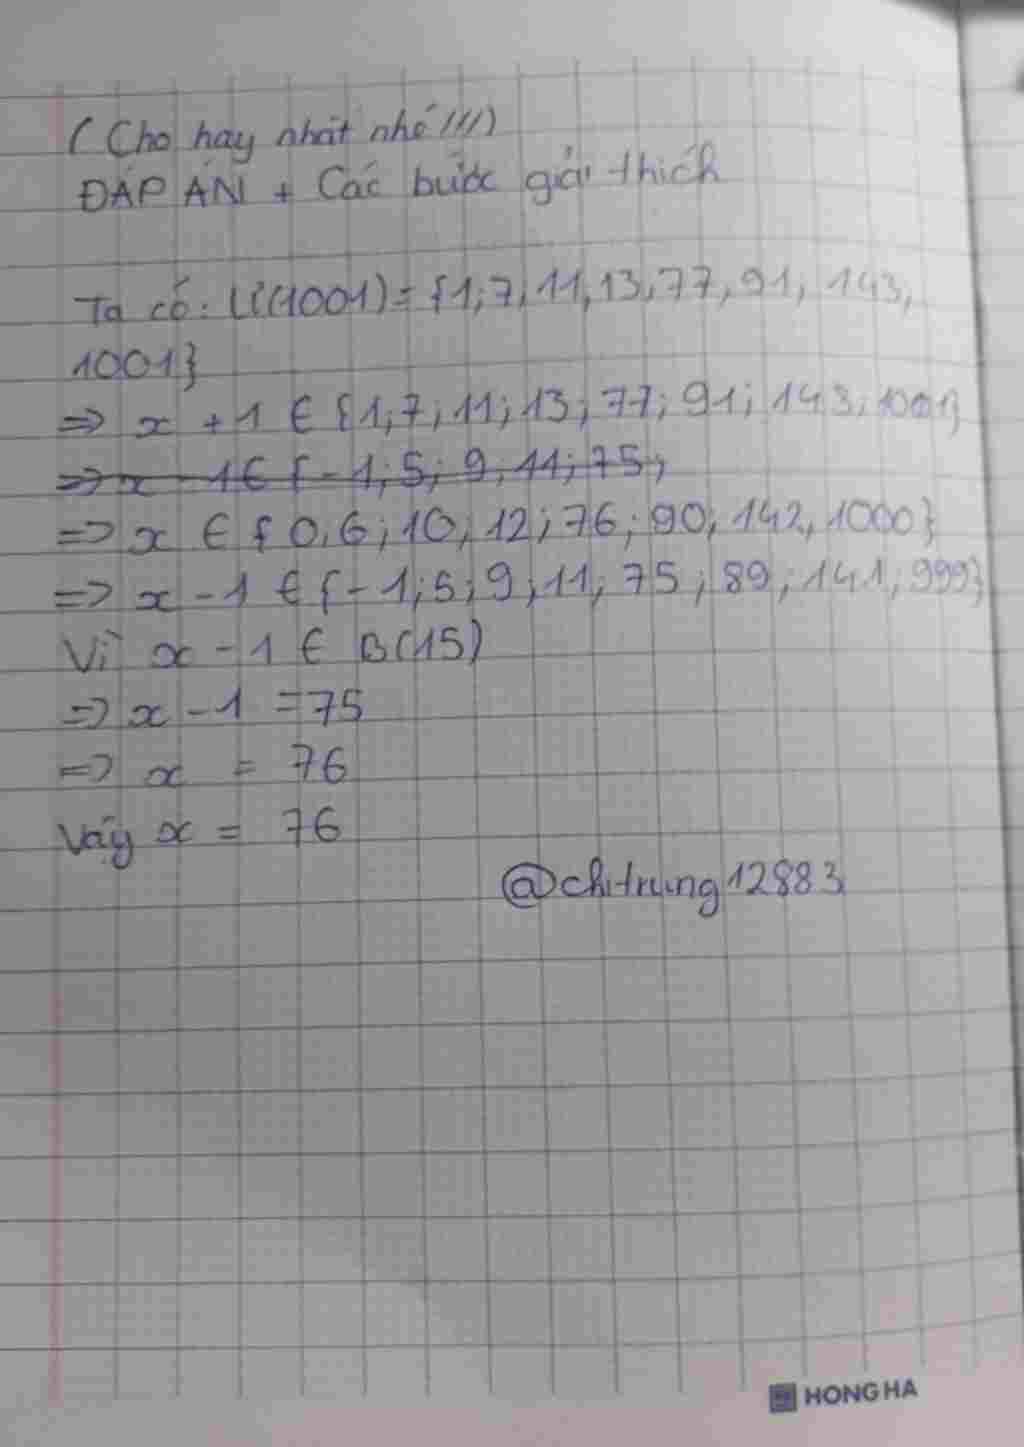 ( Cho hay nhất nhé !!!)
ĐÁP ÁN + Các bước giải thích
Ta có: Ư(1001) = {1; 7, 11, 13, 77, 91; 143,
1001}
=> x + 1 ∈ {1; 7; 11; 13; 77; 91; 143; 1001}
=> x - 1 ∈ {-1; 5; 9; 11; 75;
=> x ∈ {0, 6; 10; 12; 76; 90, 142, 1000}
=> x - 1 ∈ {-1; 5; 9; 11, 75; 89; 141; 999}
Vì x - 1 ∈ B(15)
=> x - 1 = 75
=> x = 76
Vậy x = 76
@chitrung12883
HONG HA